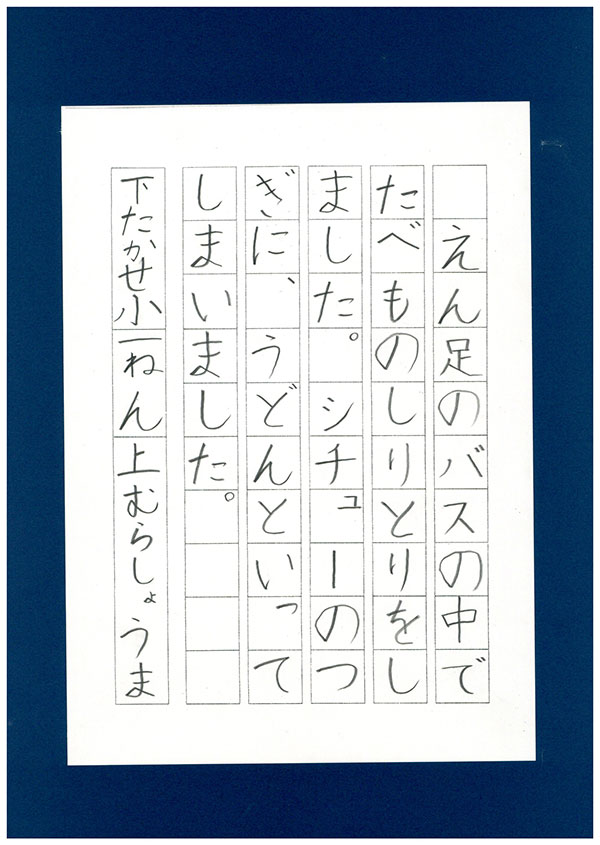 えん足のバスの中で
たべものしりとりをし
ました。シチューのつ
ぎに、うどんといって
しまいました。
下たかせ小一ねん上むらしょうま